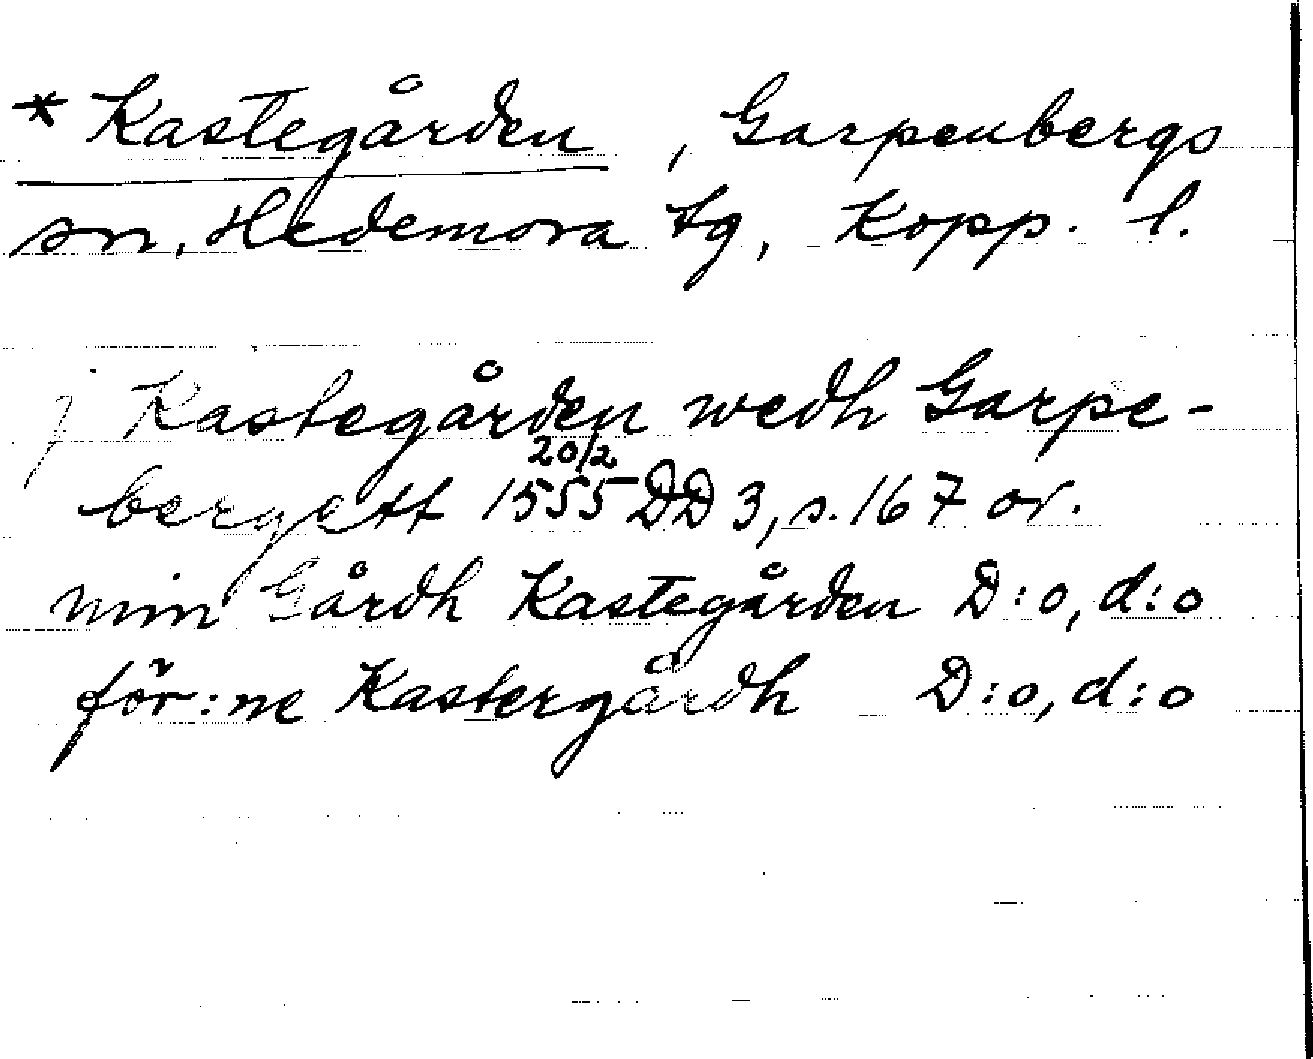 * Kastegården, Garpenbergs
sn, Hedemora tg, Kopp. l.
j Kastegården wedh Garpe-
bergett 20/2 1555 DD 3, s. 167 or.
min Gårdh Kastegården D:o, d:o
för:ne Kastergårdh D:o, d:o